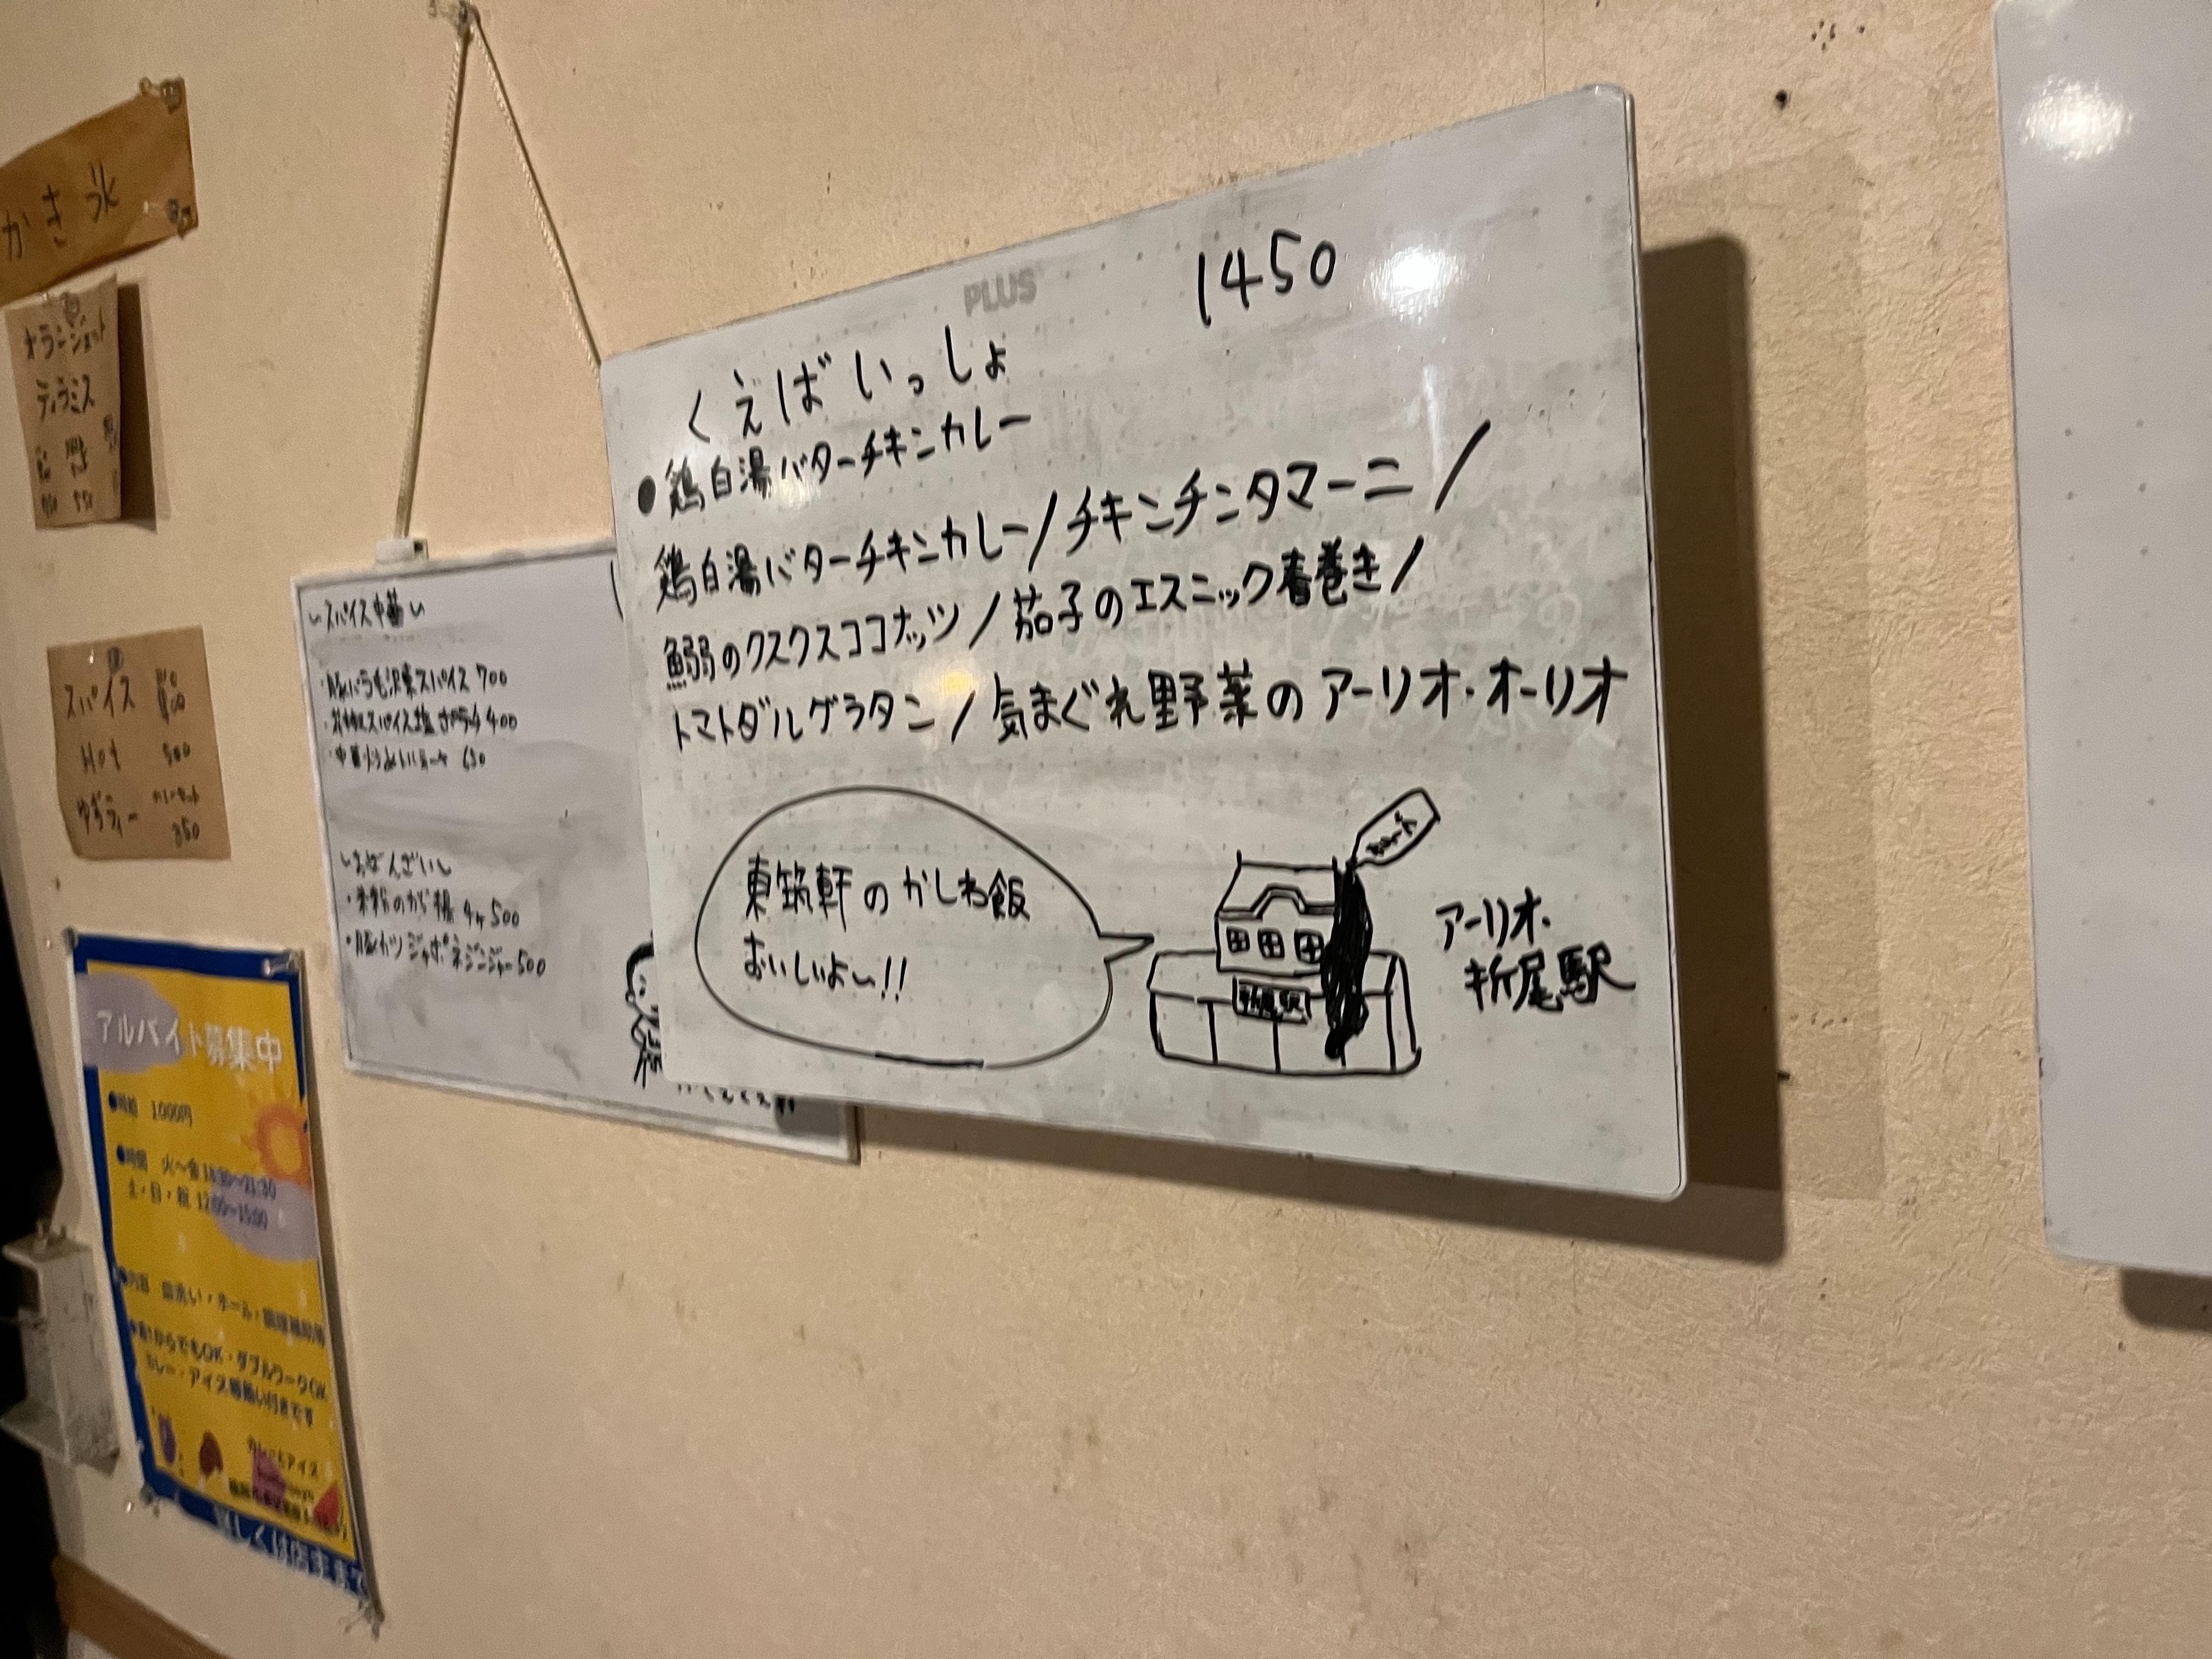 かき氷
オランジェット
ティラミス
スパイス
Hot 500
ゆずティー
350
PLUS
1450
くえばいっしょ
●鶏白湯バターチキンカレー
鶏白湯バターチキンカレー/チキンチンタマーニ/
鰯のクスクスココナッツ/茄子のエスニック春巻き/
トマトダルグラタン/気まぐれ野菜のアーリオ・オーリオ
東筑軒のかしわ飯
おいしいよ〜!!
折尾駅
アーリオ・
折尾駅
・豚バラ毛沢東スパイス 700
400
650
〜おばんざい〜
500
・豚カツジャポネジンジャー 500
アルバイト募集中
●時給 1000円
●時間 火〜金 18:30〜21:30
土・日・祝 12:00〜15:00
●内容 皿洗い・ホール・調理補助等
からでもOK・ダブルワークOK
カレー・アイス賄い付きです
カレーとアイス
詳しくは店主まで